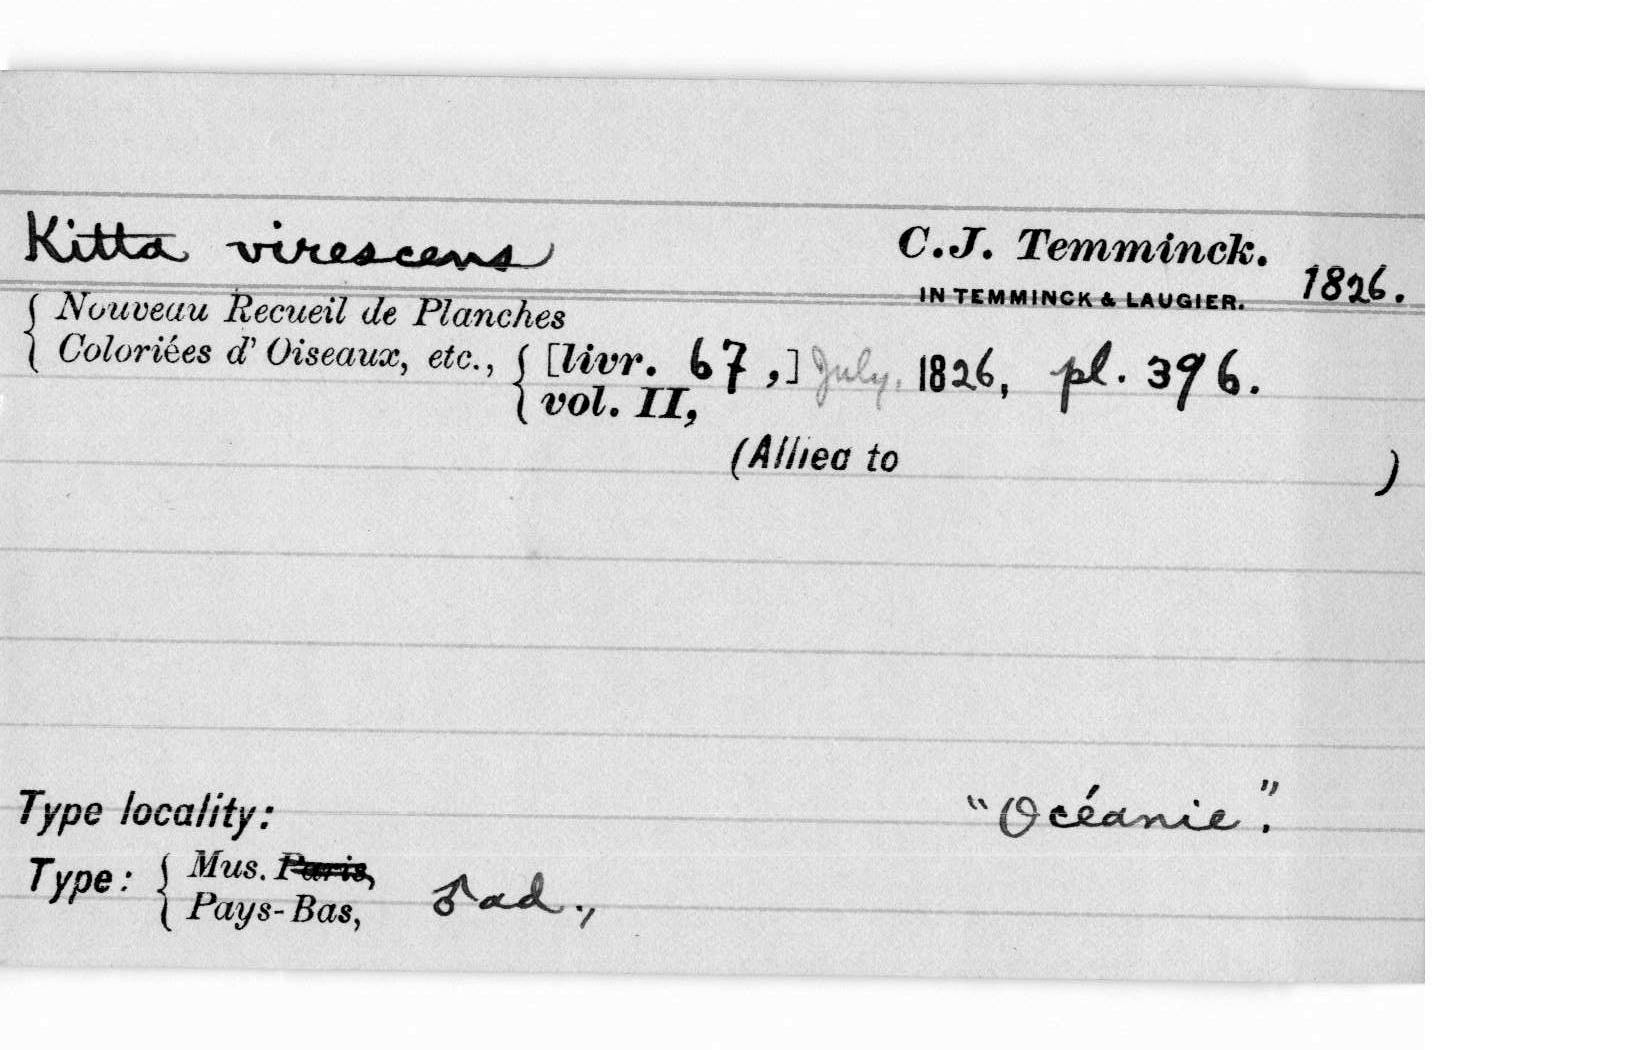 Kitta virescens C.J. Temminck.
IN TEMMINCK & LAUGIER. 1826.
{ Nouveau Recueil de Planches
Coloriées d' Oiseaux, etc., { [livr. 67,] July, 1826, pl. 396.
vol. II,
(Allied to )
Type locality: "Océanie".
Type: { Mus. Paris,
Pays-Bas, ♂ ad.,